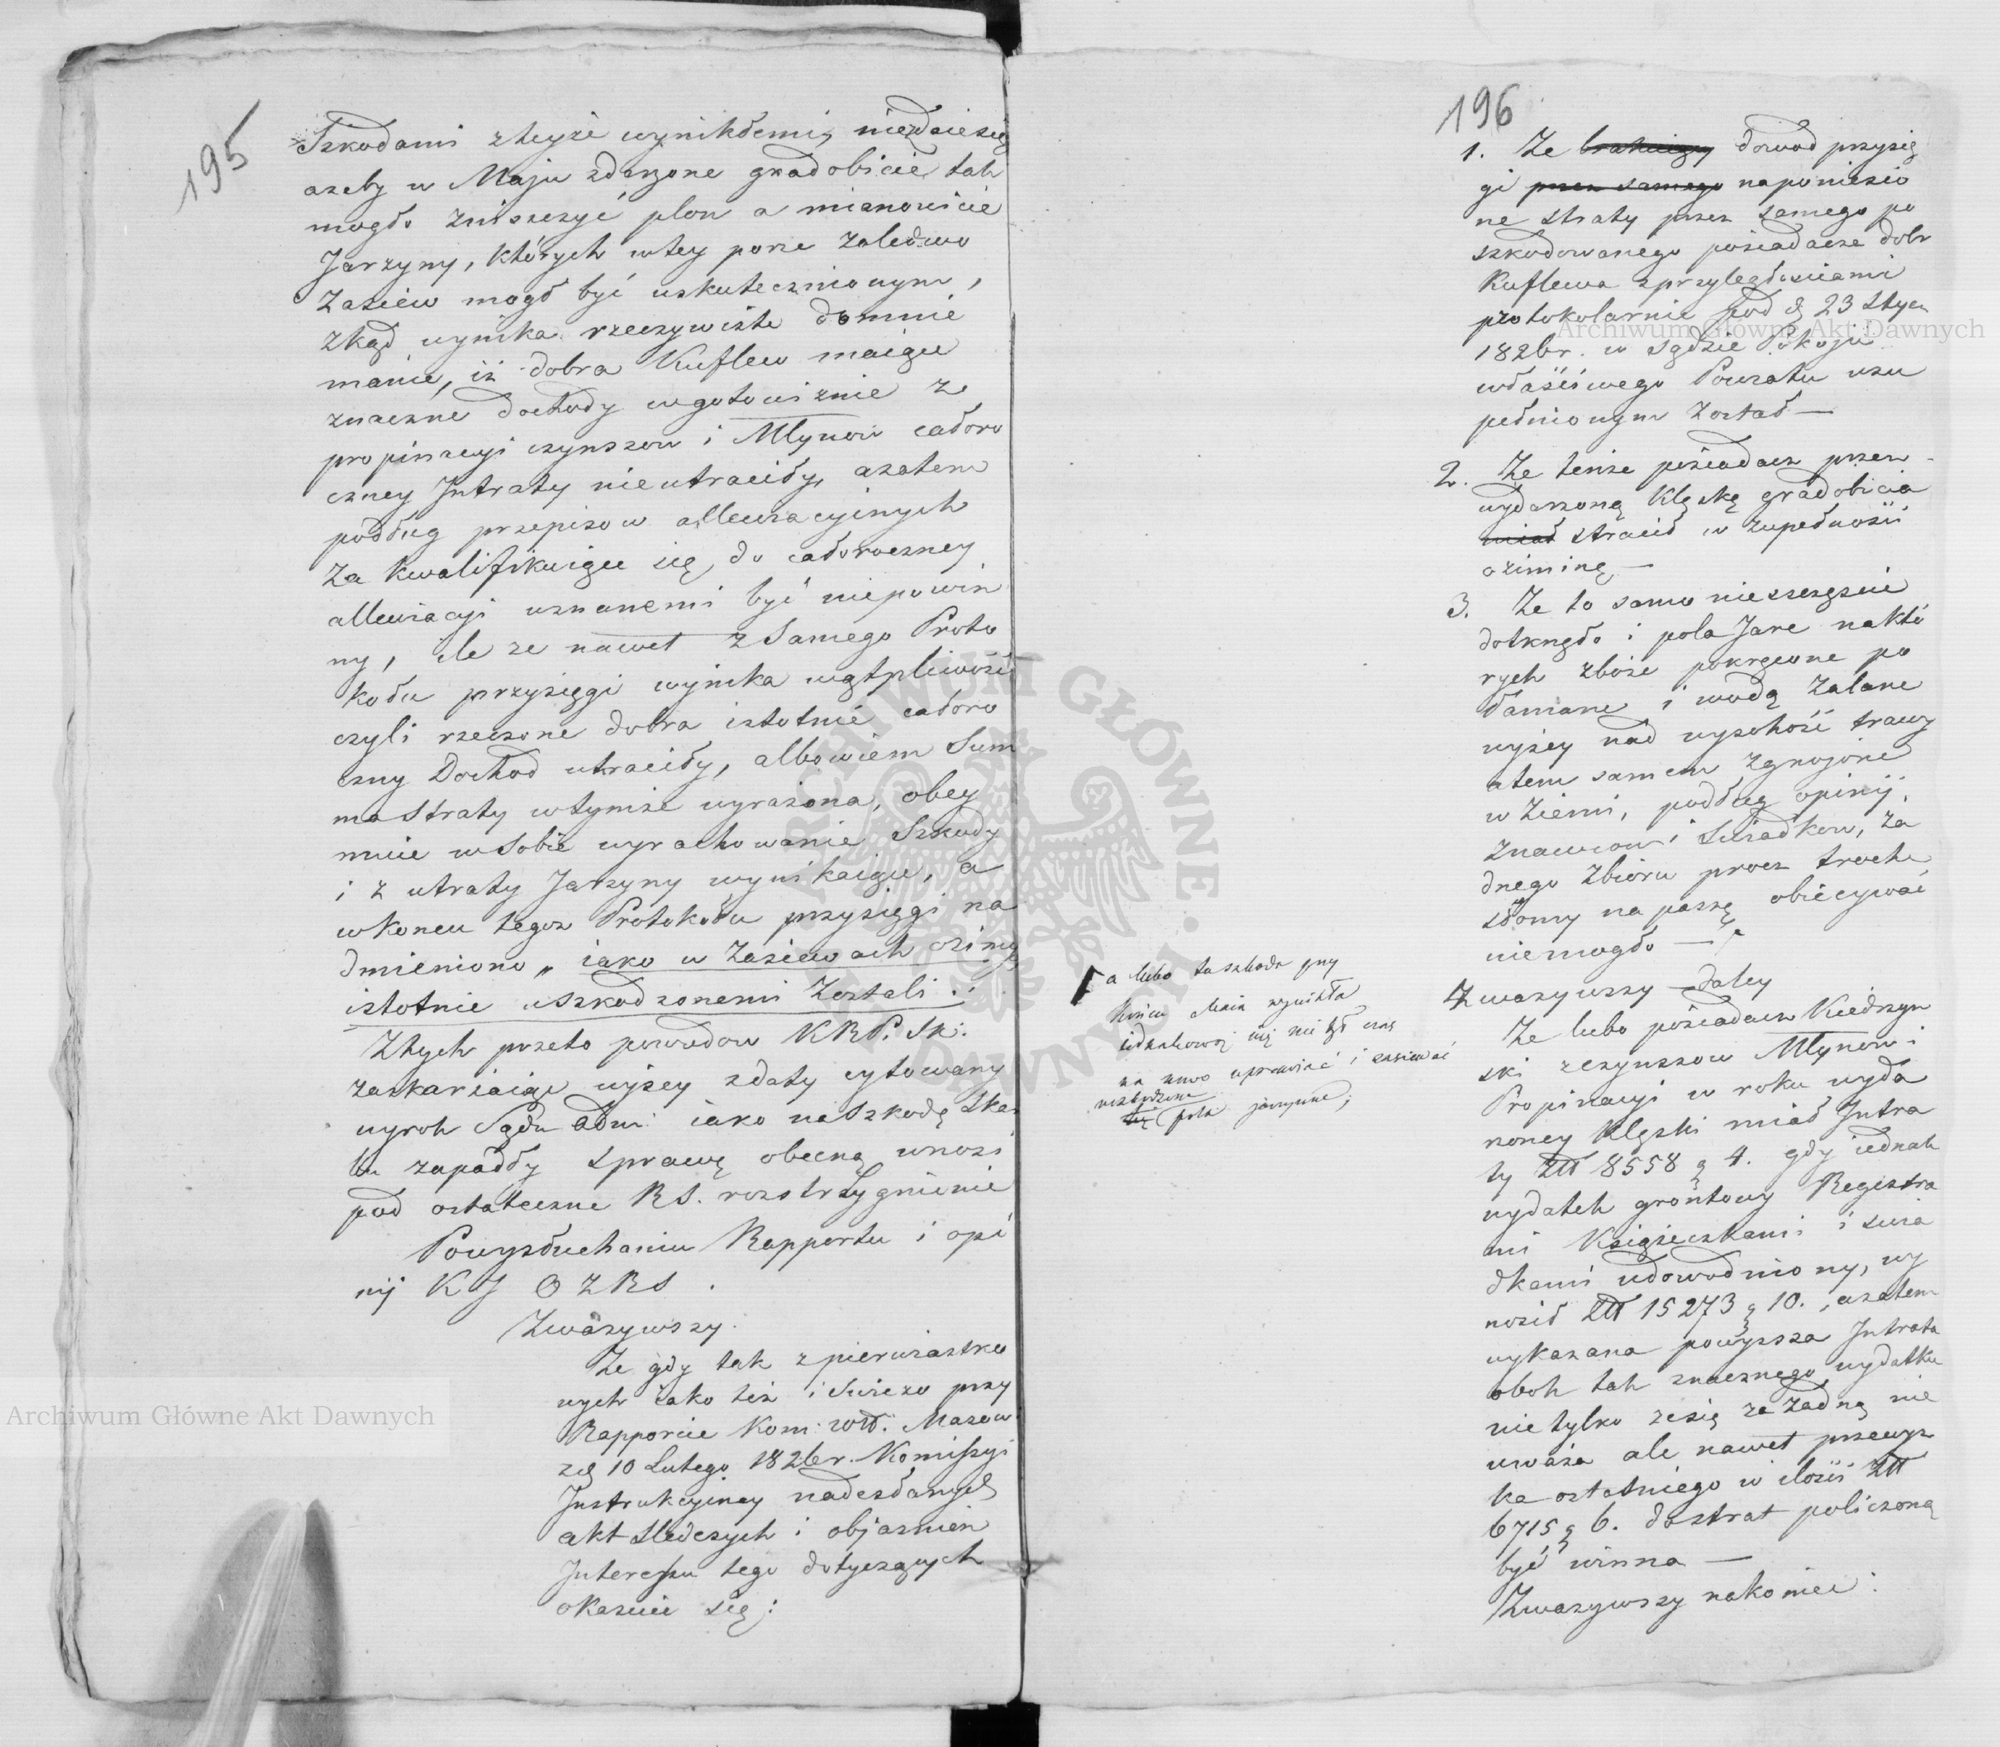 195
Szkodami zteyże wynikłemi, niezdaie się
ażeby w Maju zdarzone gradobicie tak
mogło zniszczyć plon a mianowicie
Jarzyny, których wtey porze zaledwo
zasiew mógł być uskutecznionym,
zkąd wynika rzeczywiste domnie
manie, iż dobra Kuflew maiące
znaczne dochody wgotowiznie z
propinacyi czynszow i Młynow całoro
czney Intraty nieutraciły, azatem
podług przepisow allewiacyinych
za kwalifikuiące się do całoroczney
allewiacyi uznanemi być niepowin
ny, ile ze nawet z Samego Proto
kołu przysięgi wynika wątpliwość
czyli rzeczone dobra istotnie całoro
czny Dochod utraciły, albowiem Sum
ma Straty wtymże wyrażona, obey
muie wSobie wyrachowanie Szkody
i z utraty Jarzyny wynikaiącą, a
wkoncu tegoz Protokołu przysięgi na
dmieniono „ iako w Zasiewach ozimych
istotnie uszkodzonemi zostali :/
Ztych przeto powodow KRP. Sk:
zaskarżaiąc wyżey zdaty cytowany
wyrok Sądu Adm: iako na Szkodę Skar
bu zapadły sprawę obecną wnosi
pod ostateczne RS. rozstrzygnienie
Powysłuchaniu Rapportu i opi
nij K J O Z R S .
Zważywszy.
Ze gdy tak z pierwiastko
wych iako też i świeżo przy
Rapporcie Kom: Wd. Mazow:
zdą 10 Lutego 1826r. Komissyi
Instrukcyiney nadesłanych
akt śledczych i objasnień
Interessu tego dotyczących
okazuie się;
196
1. Ze dowod przysię
gi przez samego naponiesio
ne straty przez samego po
szkodowanego posiadacza dobr
Kuflewa zprzyległościami
protokolarnie pod d. 23 Stycz
1826r. w sądzie Pokoju
właściwego Powiatu uzu
pełnionym został —
2. Ze tenże posiadacz przez
wydarzoną klęskę gradobicia
miał stracił w zupełności
oziminę —
3. Ze to samo nieszczęście
dotknęło i pola Jare naktó
rych zboże pokręcone po
łamane i wodą zalane
wyżey nad wysokość trawy
atem samem zgnojone
w Ziemi, podług opinij,
znawcow i Swiadkow, za
dnego zbioru procz trochu
słomy na paszę obiecywać
niemogło —
a lubo taszkoda przy
końcu Maia wynikła
iednakowoż iuż nie był czas
na nowo uprawiać i zasiewać
uszkodzone
pola jarzynne;
Zwazywszy — daley
Ze lubo posiadacz Kiedrzyn
ski zczynszow Młynow i
Propinacyi w roku wyda
rzoney klęski miał Intra
ty Złł 8558 g 4. gdy iednak
wydatek grontowy Registra
mi Książeczkami i swia
dkami udowodniony, wy
nosił Złł 15273 g 10., azatem
wykazana powyższa Intrata
obok tak znacznego wydatku
nie tylko zesię za żadną nie
uważa ale nawet przewyż
ka ostatniego w ilości Złł
6715 g 6. dostrat policzoną
być winna —
Zwazywszy nakoniec:
Archiwum Główne Akt Dawnych
Archiwum Główne Akt Dawnych
ARCHIWUM GŁÓWNE AKT DAWNYCH